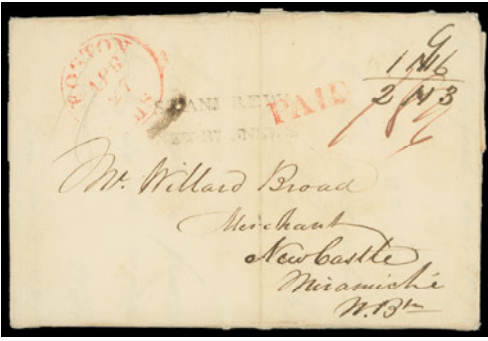 BOSTON
APR
27
MS
PAID
9
1 N 6
2 N 3
Mr. Willard Broad
Merchant
New Castle
Miramichi
N. Bk